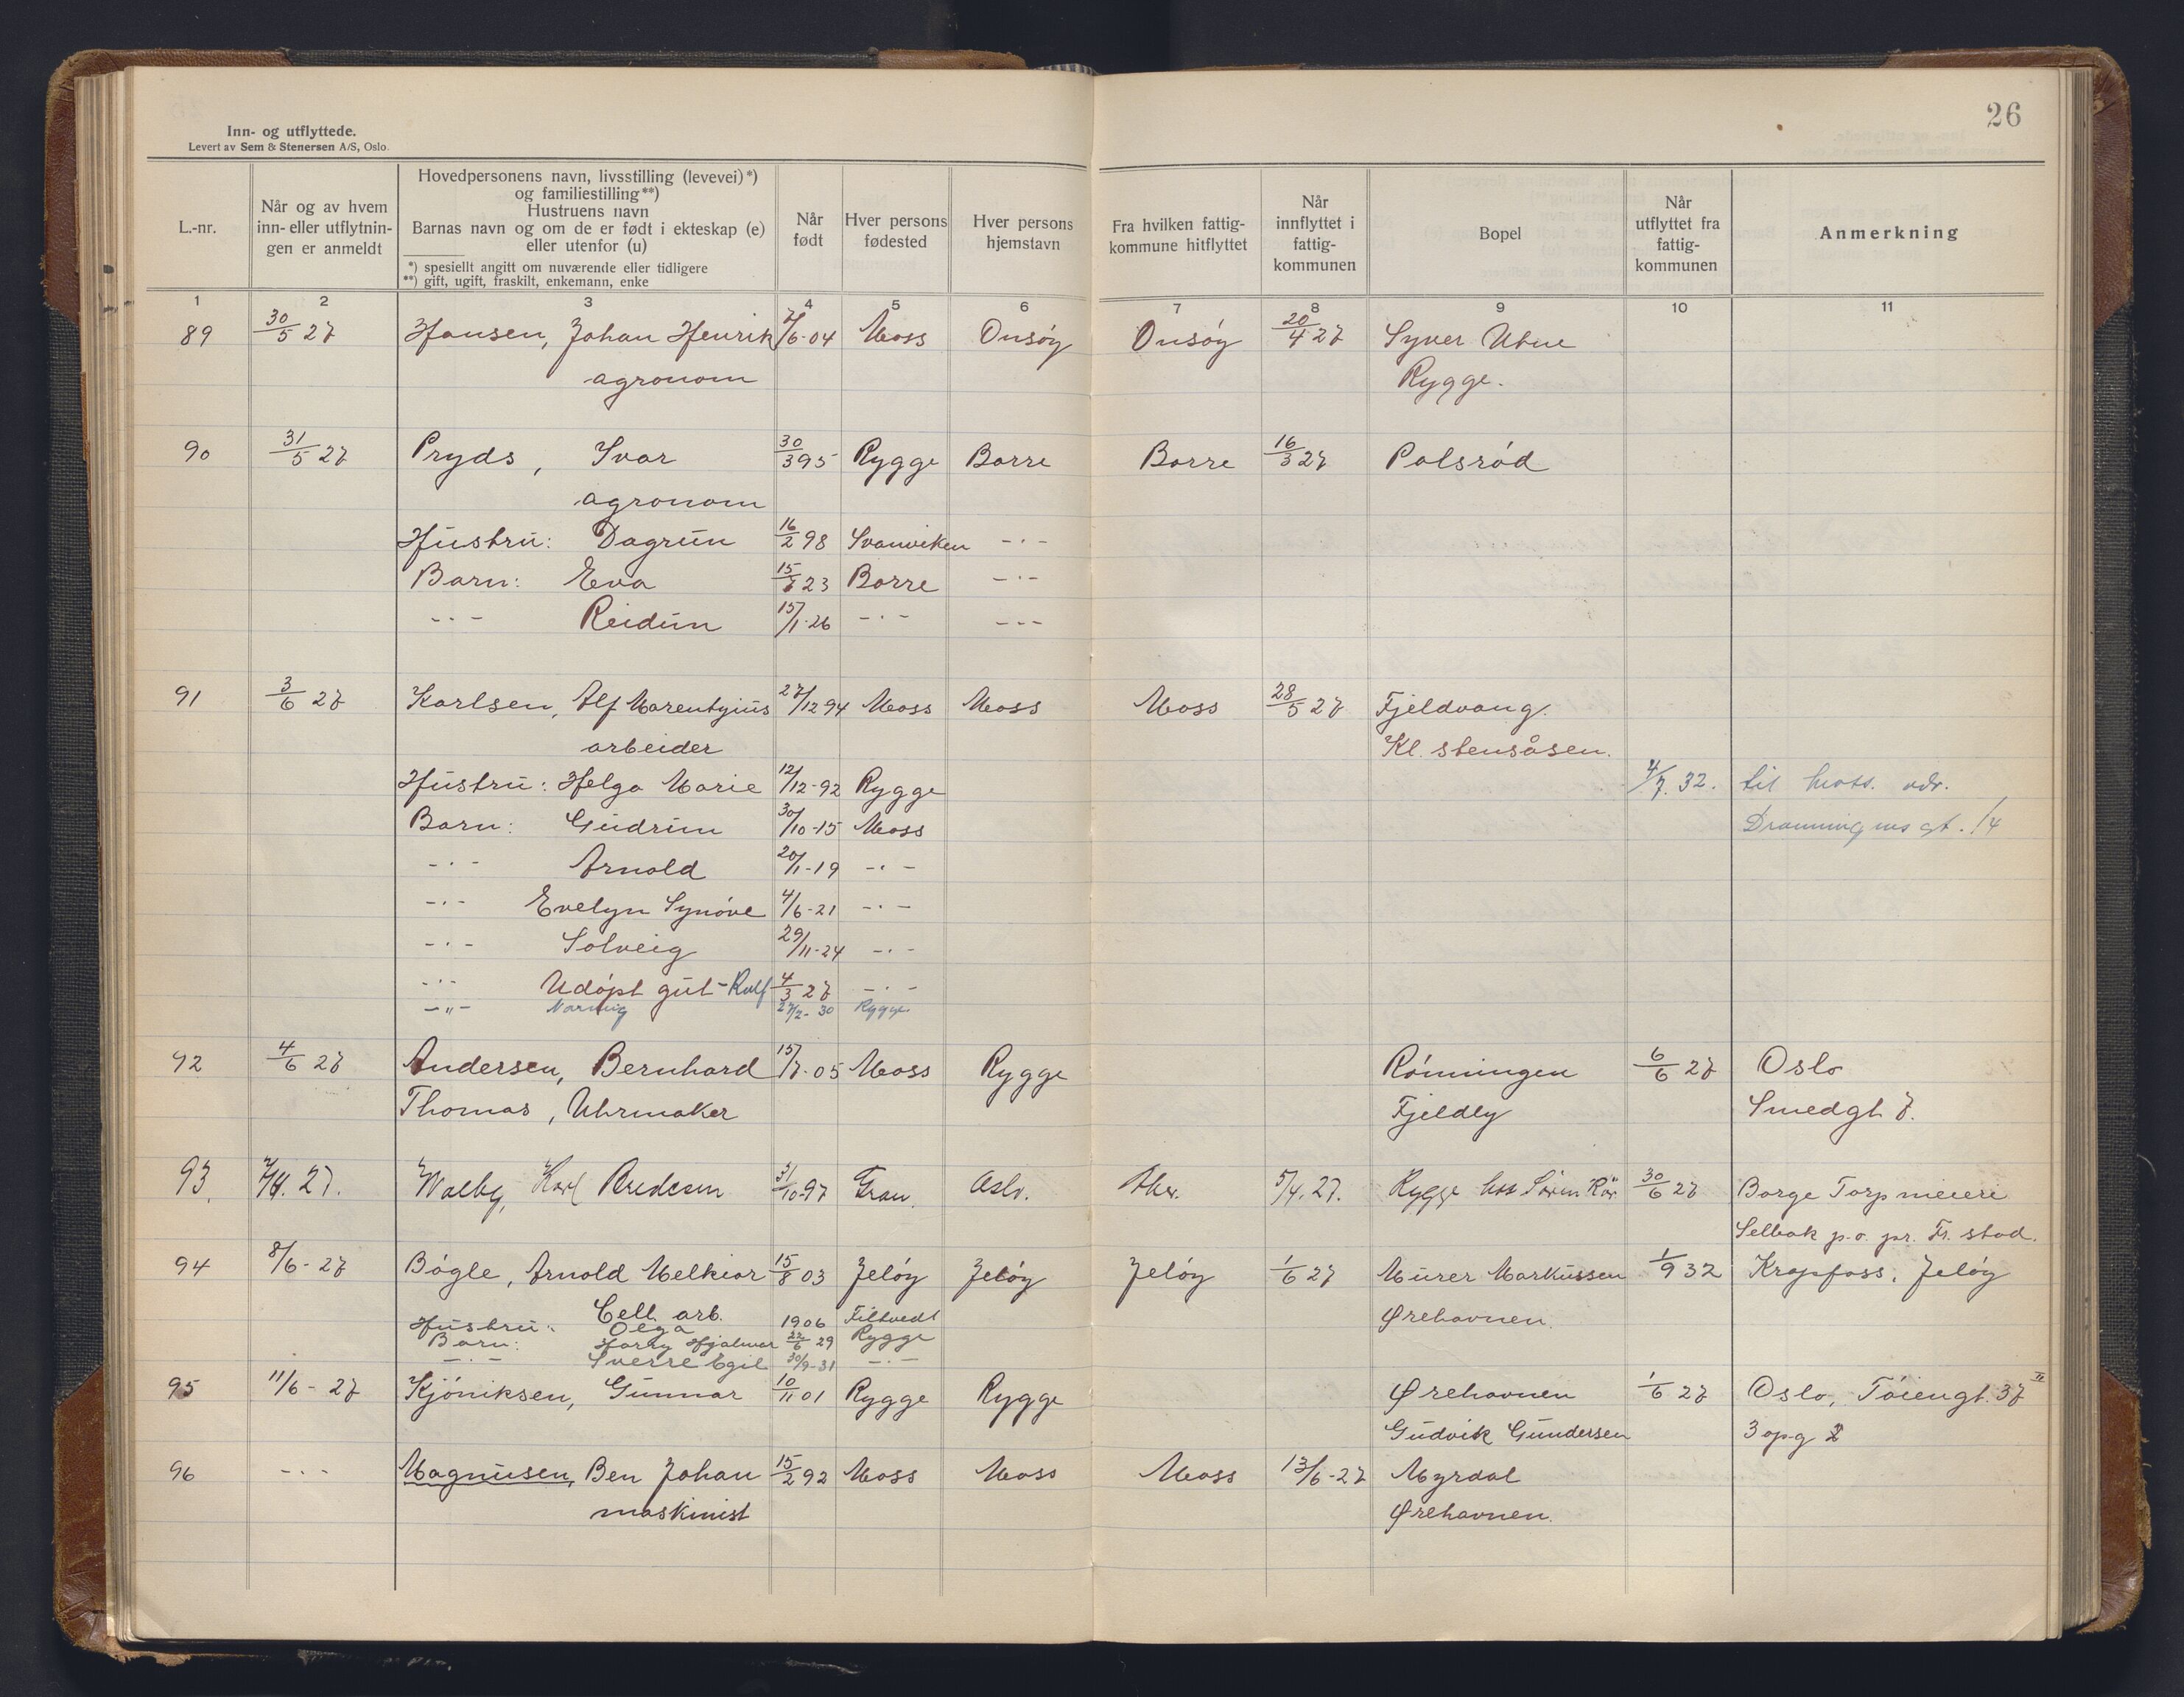 26
Inn- og utflyttede.
Levert av Sem & Stenersen A/S, Oslo.
L.-nr.
Når og av hvem inn- eller utflytnin-gen er anmeldt
Hovedpersonens navn, livsstilling (levevei)*)
og familiestilling**)
Hustruens navn
Barnas navn og om de er født i ekteskap (e)
eller utenfor (u)
*) spesiellt angitt om nuværende eller tidligere
**) gift, ugift, fraskilt, enkemann, enke
Når født
Hver persons fødested
Hver persons hjemstavn
Fra hvilken fattig-kommune hitflyttet
Når innflyttet i fattig-kommunen
Bopel
Når utflyttet fra fattig-kommunen
Anmerkning
1 2 3 4 5 6 7 8 9 10 11
89 30/5 27 Hansen, Johan Henrik 7/6-04 Moss Onsøy Onsøy 20/4 27 Syver Utne
agronom Rygge.
90 31/5 27 Pryds, Ivar 30/3 95 Rygge Borre Borre 16/3 27 Palsrød
agronom
Hustru: Dagrun 16/2 98 Svanviken -·-
Barn: Eva 15/7 23 Borre -·-
-·- Reidun 15/1-26 -·- -·-
91 3/6 27 Karlsen, Alf Marentyius 27/12 94 Moss Moss Moss 28/5 27 Fjeldvang.
arbeider Kl. stensåsen.
Hustru: Helga Marie 12/12-92 Rygge 4/7. 32. til Moss. adr.
Barn: Gudrun 30/10-15 Moss Dronningens gt. 14
-·- Arnold 20/1-19 -·-
-·- Evelyn Synøve 4/6-21 -·-
-·- Solveig 29/11-24 -·-
-·- Udøpt gut - Rolf 4/3 27 -·-
-"- 27/2-30 Rygge
92 4/6 27 Andersen, Bernhard 15/7-05 Moss Rygge Rønningen 6/6 27 Oslo
Thomas, Uhrmaker Fjeldly Smedgt 7.
93. 27. Walby, Karl Bredesen 3/10-97 Gran. Oslo. Aker. 5/4. 27. Rygge hos Søren Rør 30/6 27 Borge Torp meieri
Selbak p.o. pr. Fr. stad.
94 8/6-27 Bøgle, Arnold Melkior 15/8 03 Jeløy Jeløy Jeløy 1/6 27 Murer Markussen 1/9 32 Krapfoss, Jeløy
Cell. arb. Ørehavnen.
Hustru: Olga 1906 Filtvedt
Barn: Harry Hjalmar 22/6 29 Rygge
-·- Sverre Egil 30/9-31 -·-
95 11/6-27 Kjøniksen, Gunnar 10/11 01 Rygge Rygge Ørehavnen 1/6 27 Oslo, Tøiengt. 37 II
Gudvik Gundersen 3 opg 2
96 -·- Magnusen, Ben Johan 15/2 92 Moss Moss Moss 13/6-27 Myrdal
maskinist Ørehavnen.